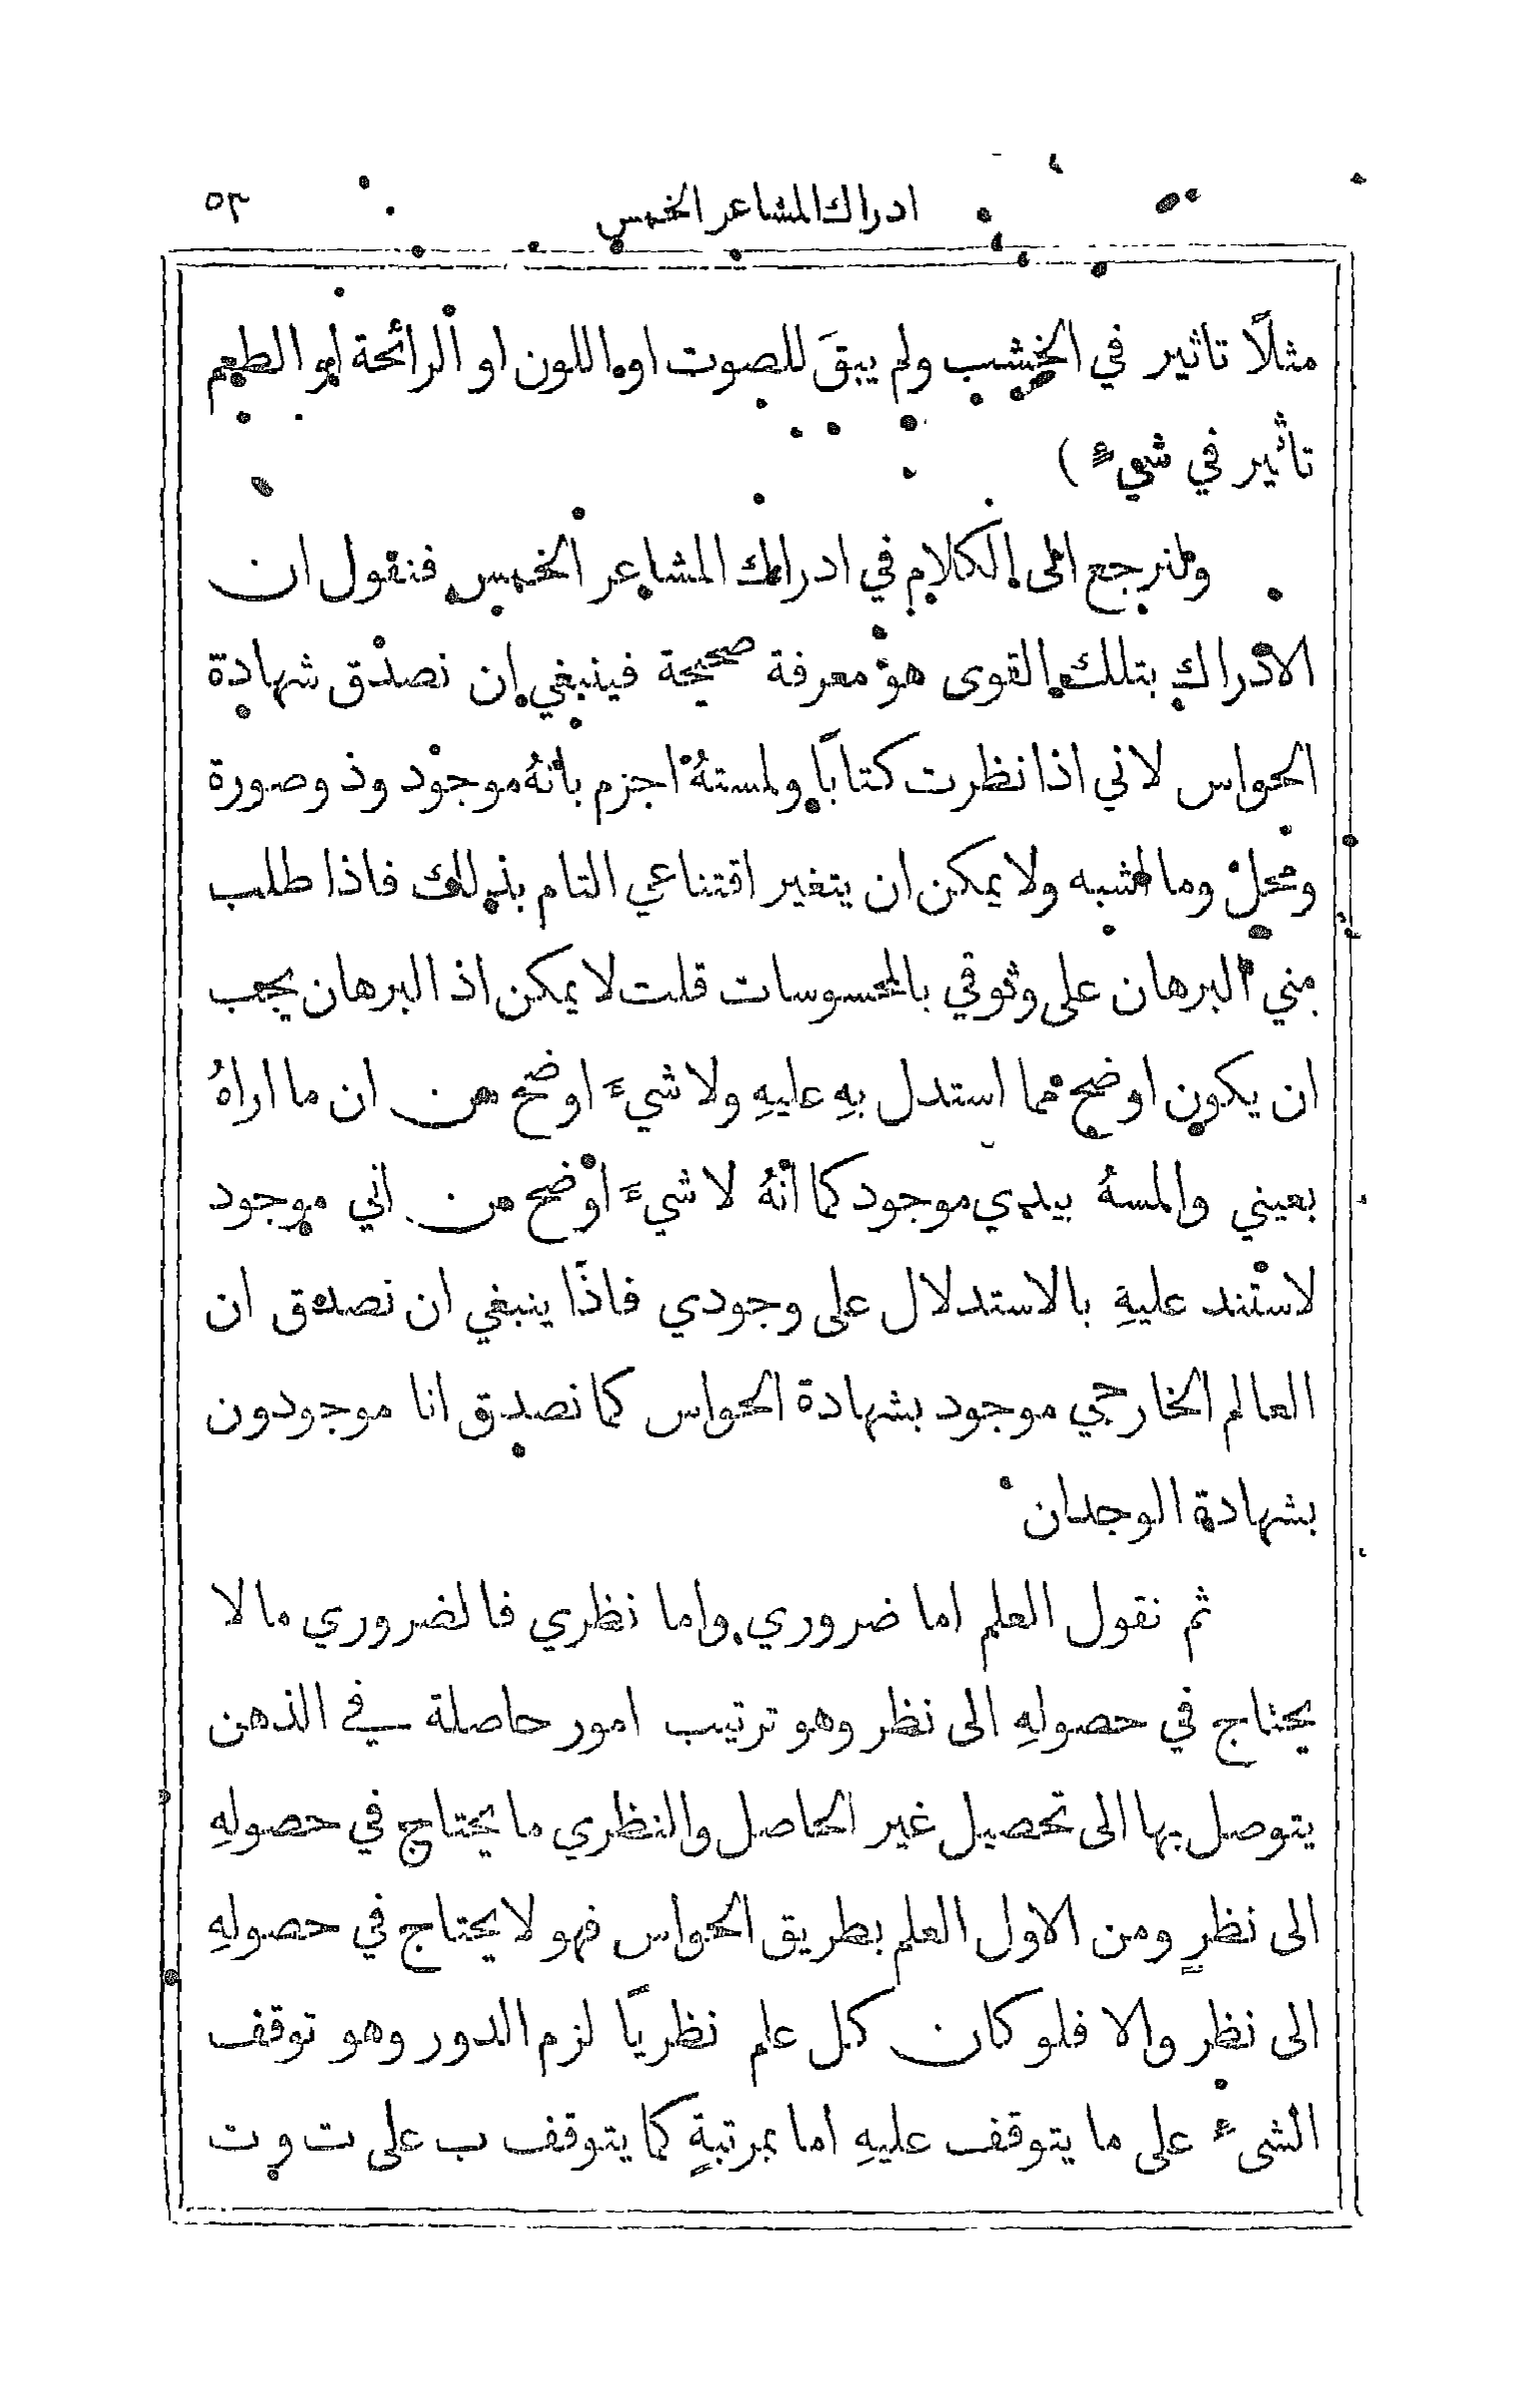 ادراك المشاعر الخمس ٥٣
مثلًا تاثير في الخشب ولم يبقَ للصوت او اللون او الرائحة او الطعم
تأثير في شيءٍ )
ولنرجع الى الكلام في ادراك المشاعر الخمس فنقول ان
الادراك بتلك القوى هو معرفة صحيحة فينبغي ان نصدق شهادة
الحواس لاني اذا نظرت كتابًا ولمستهُ اجزم بانهُ موجود وذو صورة
ومحل وما اشبه ولا يمكن ان يتغير اقتناعي التام بذلك فاذا طلب
مني البرهان على وثوقي بالمحسوسات قلت لا يمكن اذ البرهان يجب
ان يكون اوضح مما استدل بهِ عليهِ ولا شيءَ اوضح من ان ما اراهُ
بعيني والمسهُ بيدي موجود كما انهُ لا شيءَ اوضح من اني موجود
لاستند عليهِ بالاستدلال على وجودي فاذًا ينبغي ان نصدق ان
العالم الخارجي موجود بشهادة الحواس كما نصدق انا موجودون
بشهادة الوجدان
ثم نقول العلم اما ضروري واما نظري فالضروري ما لا
يحتاج في حصولهِ الى نظر وهو ترتيب امور حاصلة في الذهن
يتوصل بها الى تحصيل غير الحاصل والنظري ما يحتاج في حصولهِ
الى نظرٍ ومن الاول العلم بطريق الحواس فهو لا يحتاج في حصولهِ
الى نظر والا فلو كان كل علم نظريًا لزم الدور وهو توقف
الشيءُ على ما يتوقف عليهِ اما بمرتبةٍ كما يتوقف ب على ت و ت